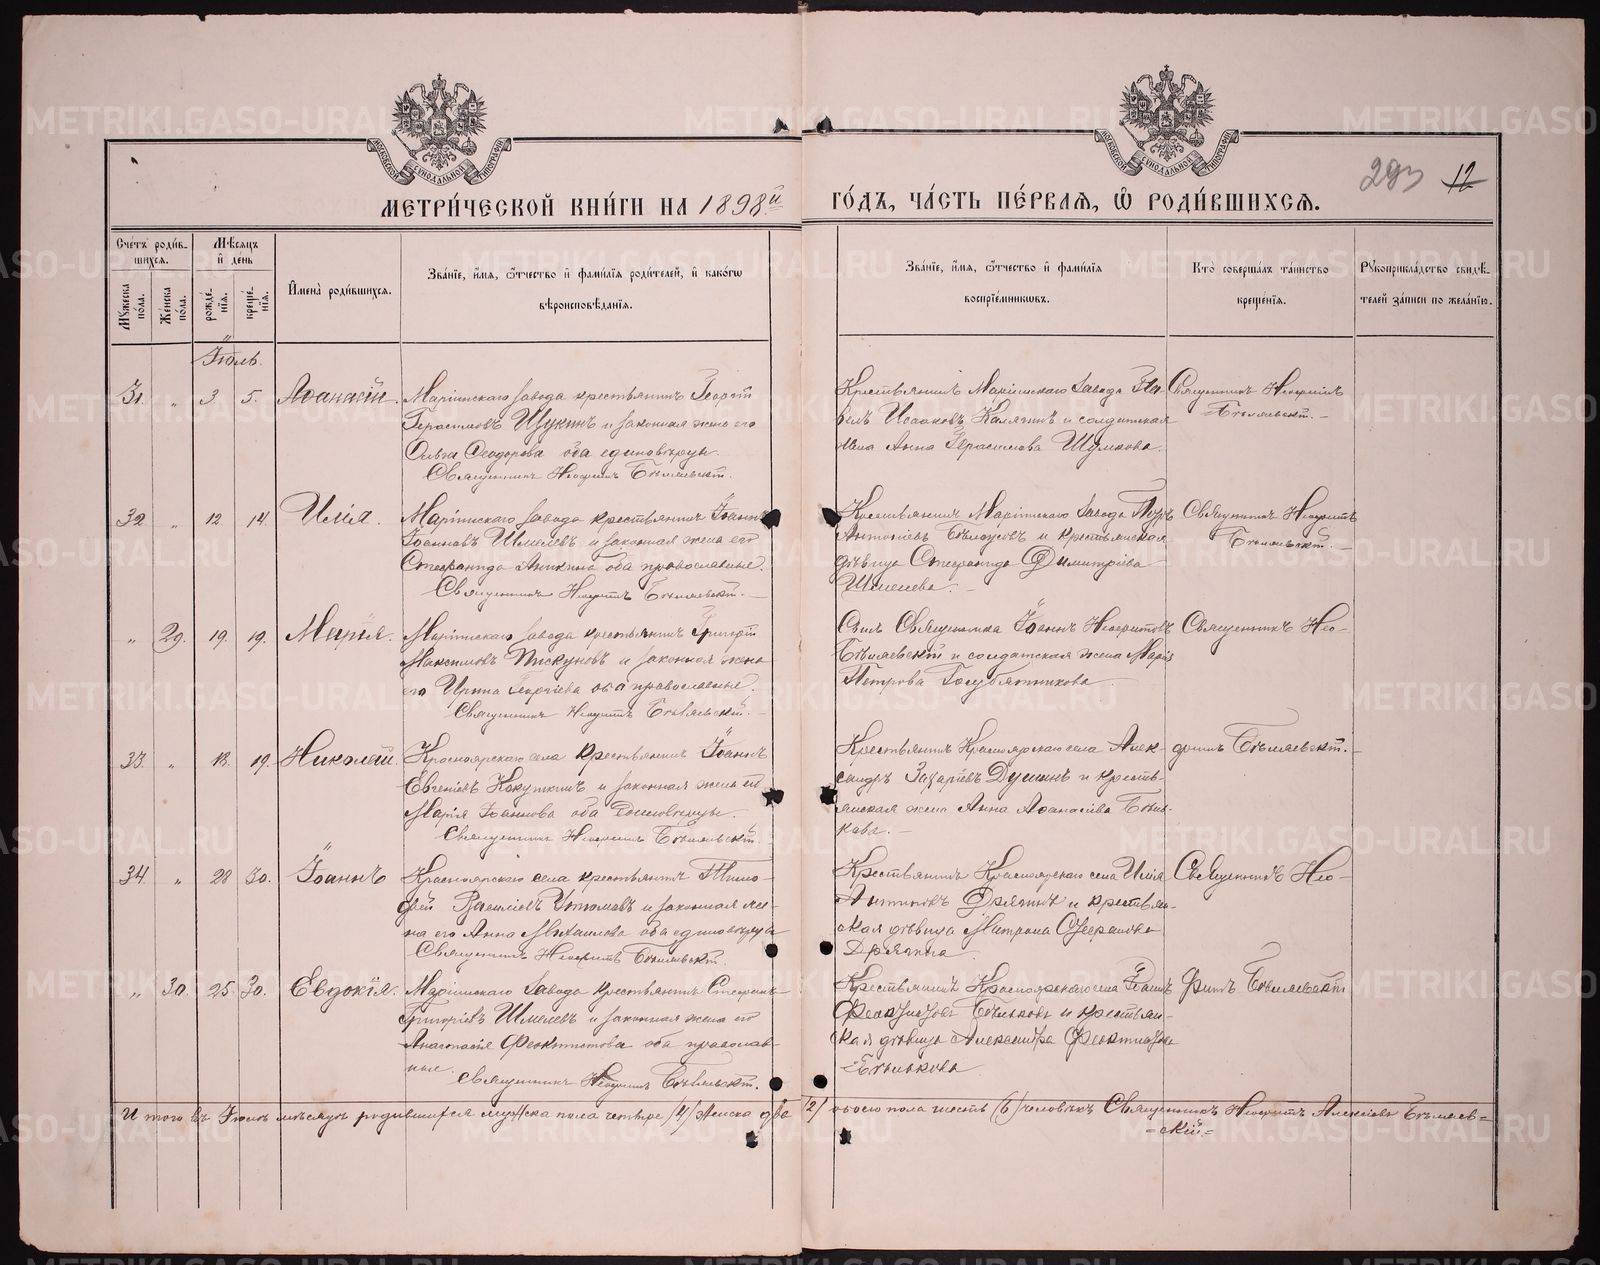 МЕТРИЧЕСКОЙ КНИГИ НА 1898й ГОДЪ, ЧАСТЬ ПЕРВАЯ, Ѽ РОДИВШИХСЯ.
293 12
Счетъ родив-
шихся.
Мужеска
пола.
Женска
пола.
Мѣсяцъ
и день
рожде-
нія.
креще-
нія.
Имена родившихся.
Званіе, имя, ѿчество и фамилія родителей, и какого
вѣроисповѣданія.
Званіе, имя, ѿчество и фамилія
воспріемниковъ.
Кто совершалъ таинство
крещенія.
Рукоприкладство свидѣ-
телей записи по желанію.
Іюль.
31. " 3 5. Аѳанасій.
Маріинскаго завода крестьянинъ Георгій
Герасимовъ Щукинъ и законная жена его
Ольга Ѳеодорова оба единовѣрцы.
Священникъ Неофитъ Бѣляевскій.
Крестьянинъ Маріинскаго завода Па-
велъ Исааковъ Калягинъ и солдатская
жена Анна Герасимова Шумкова.
Священникъ Неофитъ
Бѣляевскій.
32 " 12 14. Илія.
Маріинскаго завода крестьянинъ Іоаннъ
Іоанновъ Шмелевъ и законная жена его
Стефанида Аникина оба православные.
Священникъ Неофитъ Бѣляевскій.
Крестьянинъ Маріинскаго завода Петръ
Антоніевъ Бѣлоусовъ и крестьянская
дѣвица Стефанида Димитріева
Шмелева.
Священникъ Неофитъ
Бѣляевскій.
" 29. 19. 19. Марія.
Маріинскаго завода крестьянинъ Григорій
Максимовъ Пискуновъ и законная жена
его Ирина Георгіева оба православные.
Священникъ Неофитъ Бѣляевскій.
Сынъ Священника Іоаннъ Неофитовъ
Бѣляевскій и солдатская жена Марія
Петрова Голубятникова.
Священникъ Нео-
33. " 18. 19. Николай.
Красноярскаго села крестьянинъ Іоаннъ
Евгеніевъ Кокушкинъ и законная жена его
Марія Іоаннова оба единовѣрцы.
Священникъ Неофитъ Бѣляевскій.
Крестьянинъ Красноярскаго села Алек-
сандръ Захаріевъ Душинъ и кресть-
янская жена Анна Аѳанасіева Бѣль-
кова.
фитъ Бѣляевскій.
34. " 28 30. Іоаннъ
Красноярскаго села крестьянинъ Тимо-
ѳей Василіевъ Утюмовъ и законная же-
на его Анна Михаилова оба единовѣрцы
Священникъ Неофитъ Бѣляевскій.
Крестьянинъ Красноярскаго села Илія
Антиповъ Дрягинъ и крестьян-
ская дѣвица Матрона
Дрягина.
Священникъ Нео-
" 30. 25. 30. Евдокія.
Маріинскаго завода крестьянинъ Стефанъ
Григоріевъ Шмелевъ и законная жена его
Анастасія Феоктистова оба православ-
ные.
Священникъ Неофитъ Бѣляевскій.
Крестьянинъ Красноярскаго села Іоаннъ
Бѣльковъ и крестьян-
ская дѣвица Александра
Бѣлькова
фитъ Бѣляевскій
Итого въ Іюлѣ мѣсяцѣ родившихся мужска пола четыре /4/ женска два /2/ обоего пола шесть /6/ человѣкъ Священникъ Неофитъ Алексіевъ Бѣляев=
=скій=
METRIKI.GASO-URAL.RU